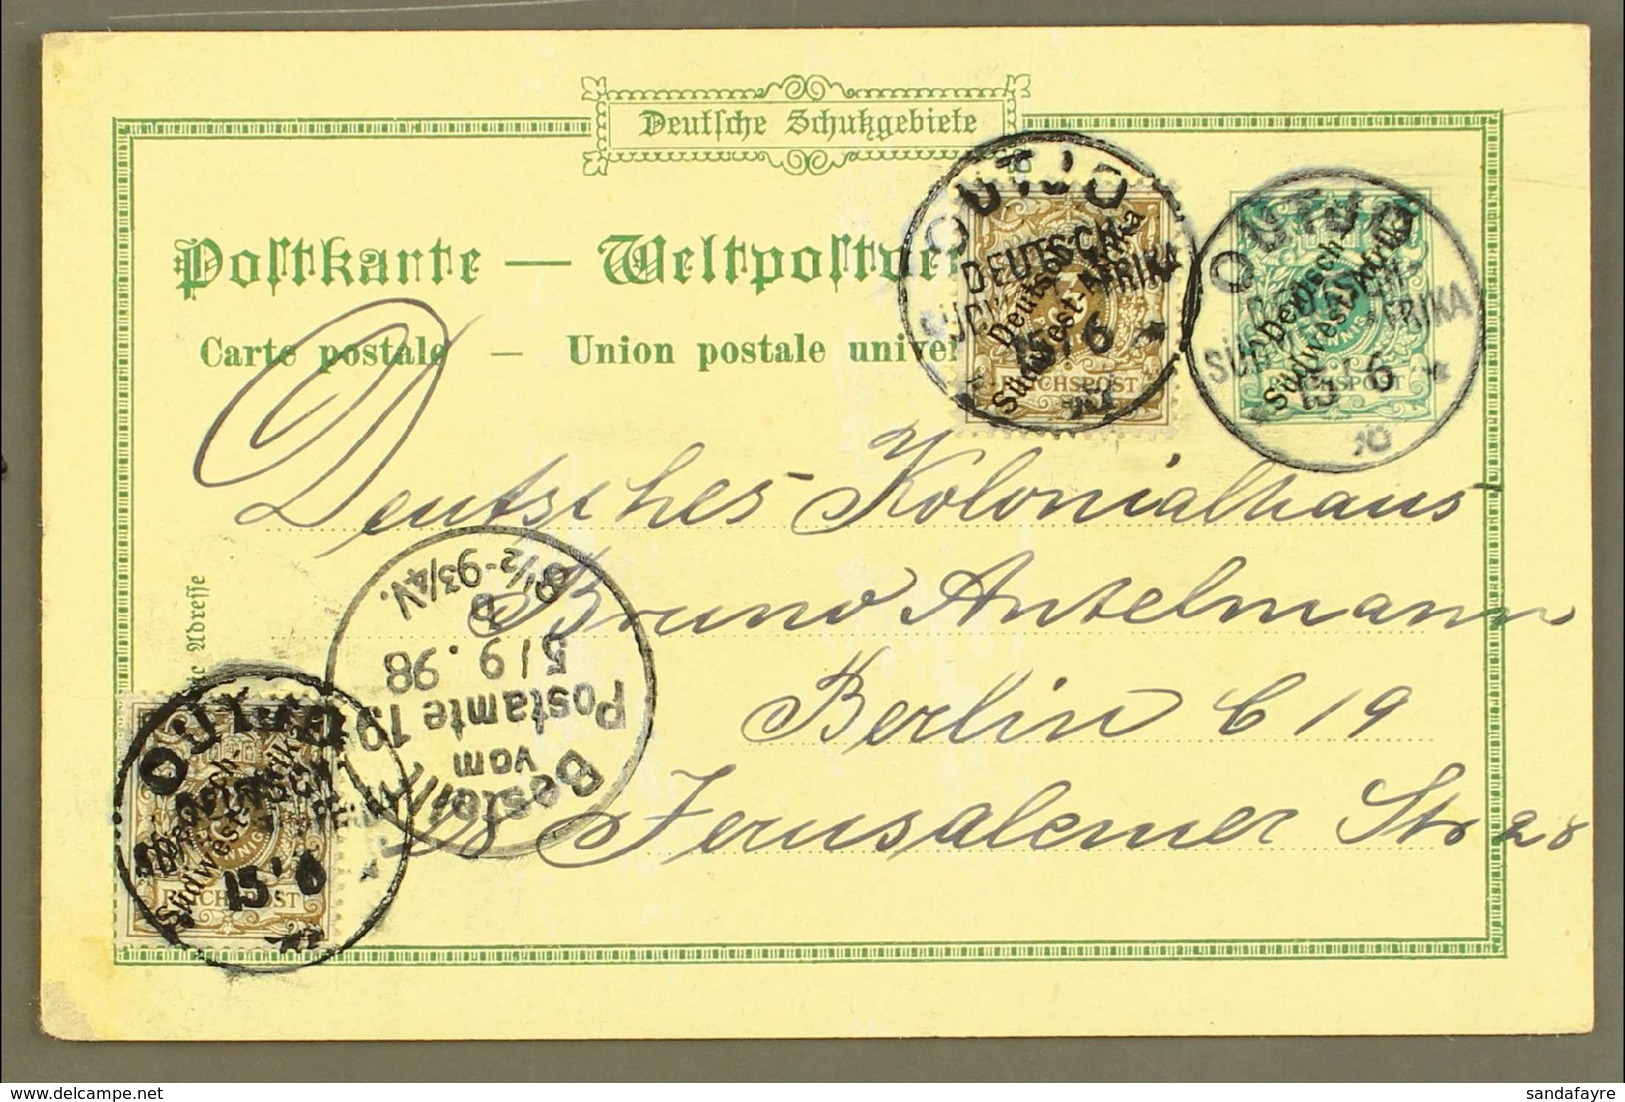 Deutsche Schutzgebiete
Postkarte — Weltpostver
Carte postale — Union postale univer
OUTJO
DEUTSCH
AFRIKA
15/6
Deutsch-
Südwest-Afrika
REICHSPOST
OUTJO
SÜDW FRIKA
15/6
Deutsch-
Südwest-Afrika
Deutsches Kolonialhaus
Bruno Antelmann
Berlin C 19
Jerusalemer Str 28
Adresse
Bestellt
vom
Postamte 19
5/9.98
8½-9¾V.
OUTJO
15/6
Deutsch-
Südwest-Afrika
REICHSPOST
sandafayre